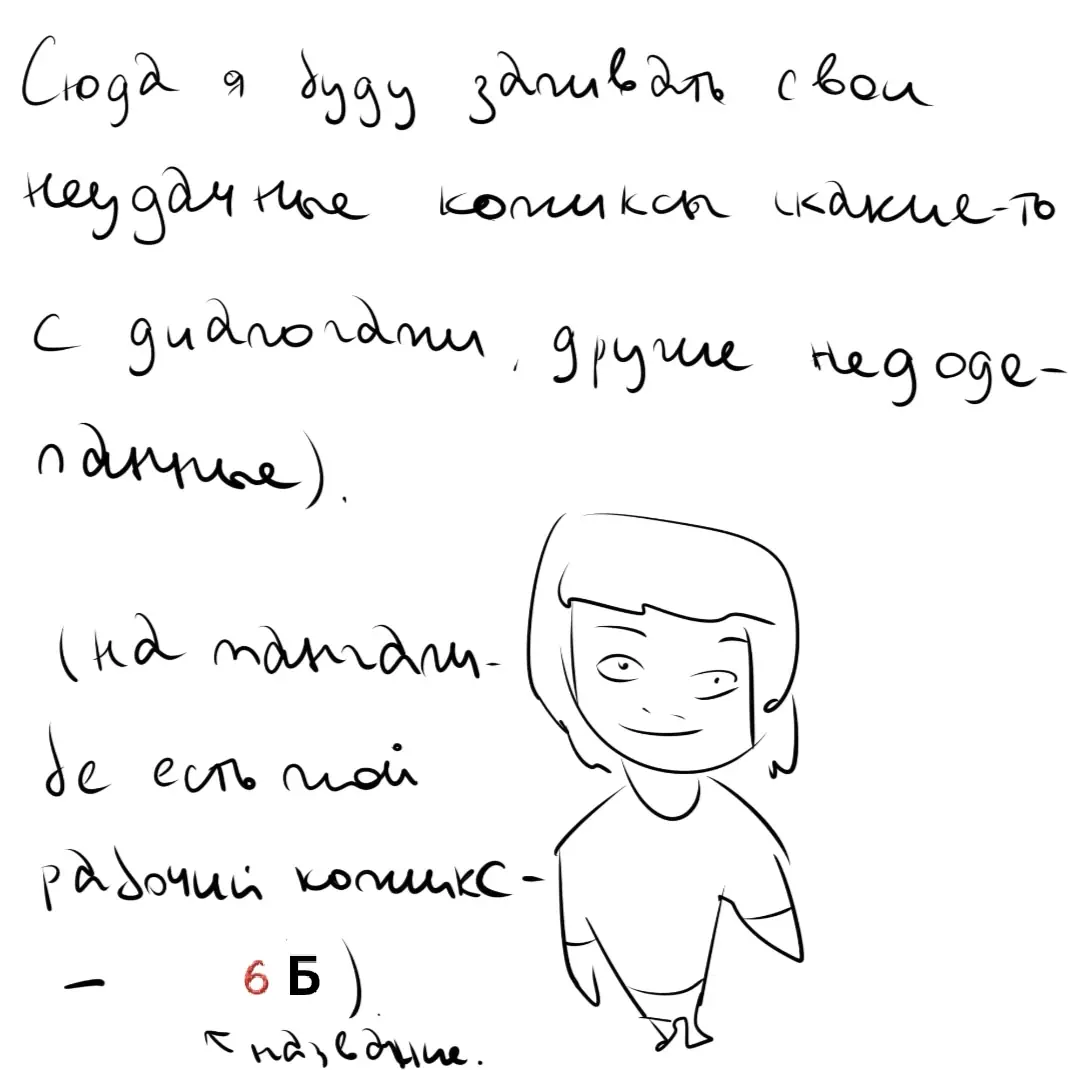 Сюда я буду заливать свои
неудачные комиксы (какие-то
с диалогами, другие недоде-
ланные).
(на мангали-
бе есть мой
рабочий комикс-
- 6 Б)
название.